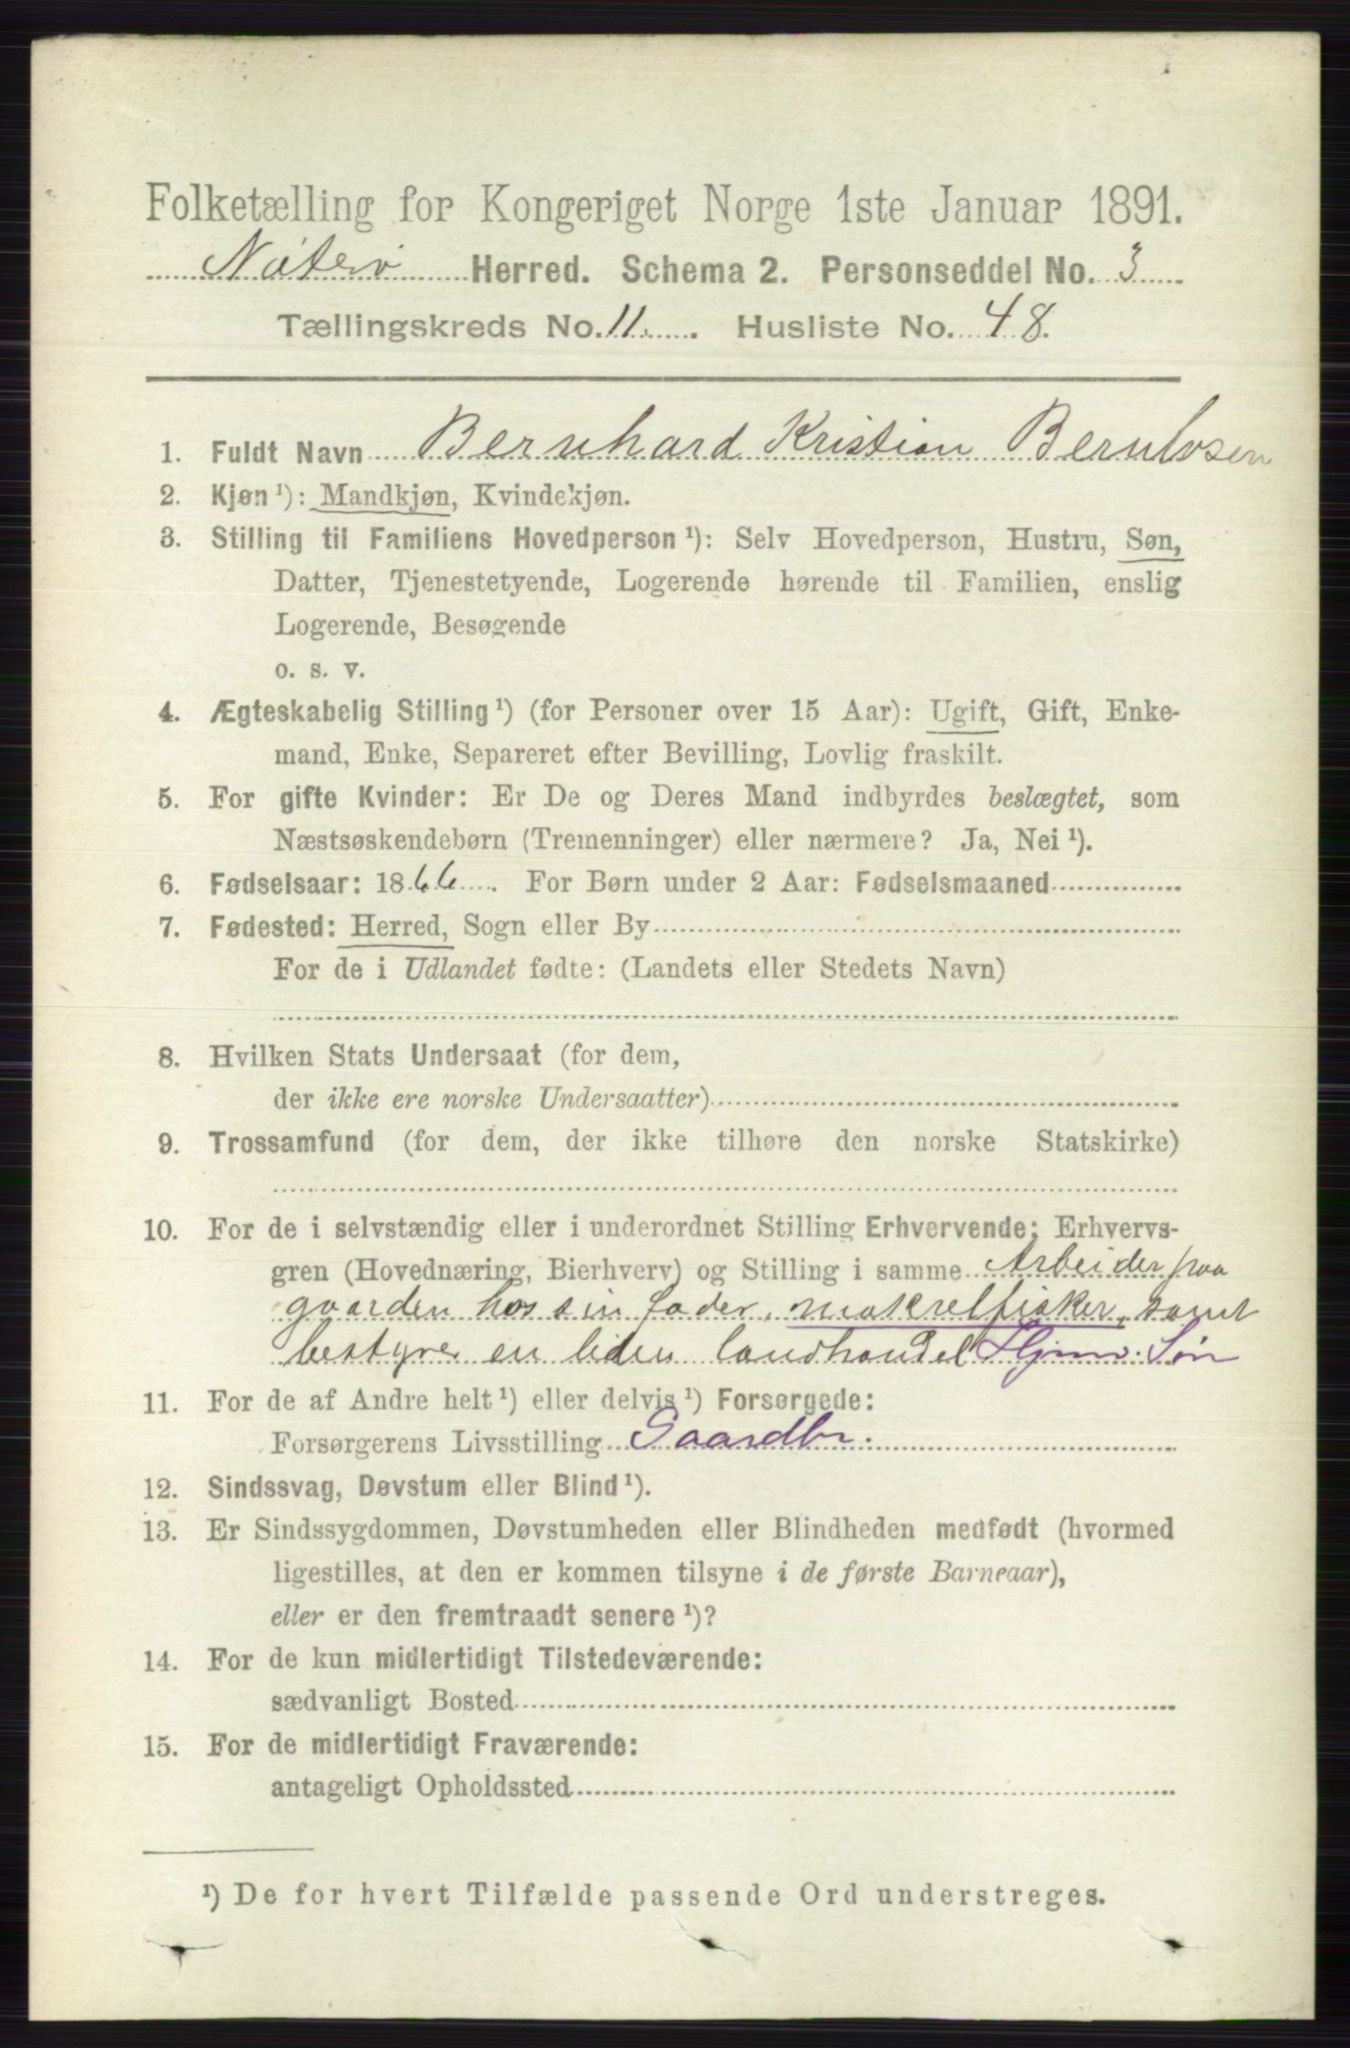 Folketælling for Kongeriget Norge 1ste Januar 1891.
Nøterø Herred. Schema 2. Personseddel No. 3
Tællingskreds No. 11. Husliste No. 48.
1. Fuldt Navn Bernhard Kristian Berntsen
2. Kjøn ¹): Mandkjøn, Kvindekjøn.
3. Stilling til Familiens Hovedperson ¹): Selv Hovedperson, Hustru, Søn,
Datter, Tjenestetyende, Logerende hørende til Familien, enslig
Logerende, Besøgende
o. s. v.
4. Ægteskabelig Stilling ¹) (for Personer over 15 Aar): Ugift, Gift, Enke-
mand, Enke, Separeret efter Bevilling, Lovlig fraskilt.
5. For gifte Kvinder: Er De og Deres Mand indbyrdes beslægtet, som
Næstsøskendebørn (Tremenninger) eller nærmere? Ja, Nei ¹).
6. Fødselsaar: 1866. For Børn under 2 Aar: Fødselsmaaned
7. Fødested: Herred, Sogn eller By
For de i Udlandet fødte: (Landets eller Stedets Navn)
8. Hvilken Stats Undersaat (for dem,
der ikke ere norske Undersaatter)
9. Trossamfund (for dem, der ikke tilhøre den norske Statskirke)
10. For de i selvstændig eller i underordnet Stilling Erhvervende: Erhvervs-
gren (Hovednæring, Bierhverv) og Stilling i samme Arbeider paa
gaarden hos sin fader, makrelfisker, samt
bestyrer en liden landhandel Hjmv. Søn
11. For de af Andre helt ¹) eller delvis ¹) Forsørgede:
Forsørgerens Livsstilling Gaardbr.
12. Sindssvag, Døvstum eller Blind ¹).
13. Er Sindssygdommen, Døvstumheden eller Blindheden medfødt (hvormed
ligestilles, at den er kommen tilsyne i de første Barneaar),
eller er den fremtraadt senere ¹)?
14. For de kun midlertidigt Tilstedeværende:
sædvanligt Bosted
15. For de midlertidigt Fraværende:
antageligt Opholdssted
¹) De for hvert Tilfælde passende Ord understreges.